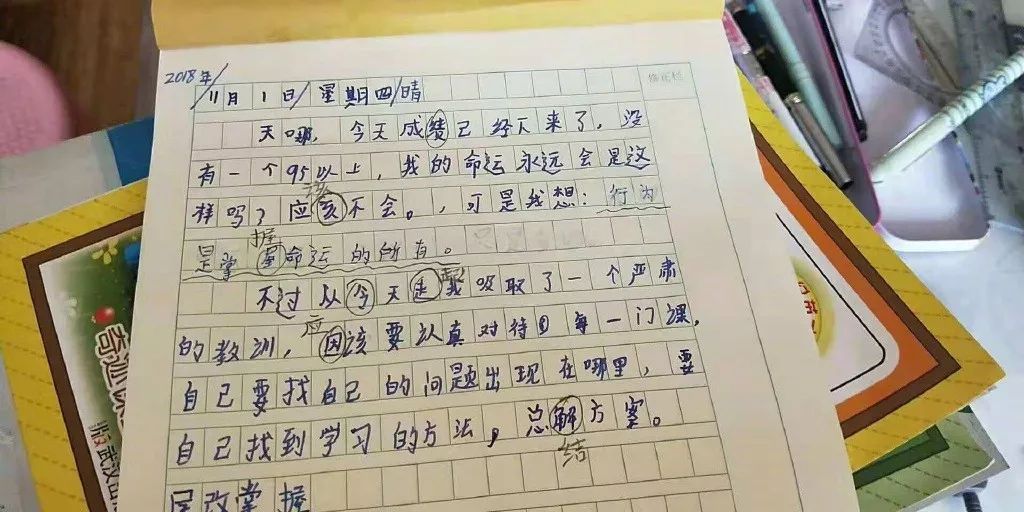 2018年/
11月1日/星期四/晴
天哪，今天成绩已经下来了，没
有一个95以上，我的命运永远会是这
样吗？应该不会。，可是我想：行为
握
是掌命运的所有。
不过从今天起我吸取了一个严肃
应
的教训，因该要认真对待每一门课，
自己要找自己的问题出现在哪里，要
自己找到学习的方法，总解方案。
结
改掌握
武汉出